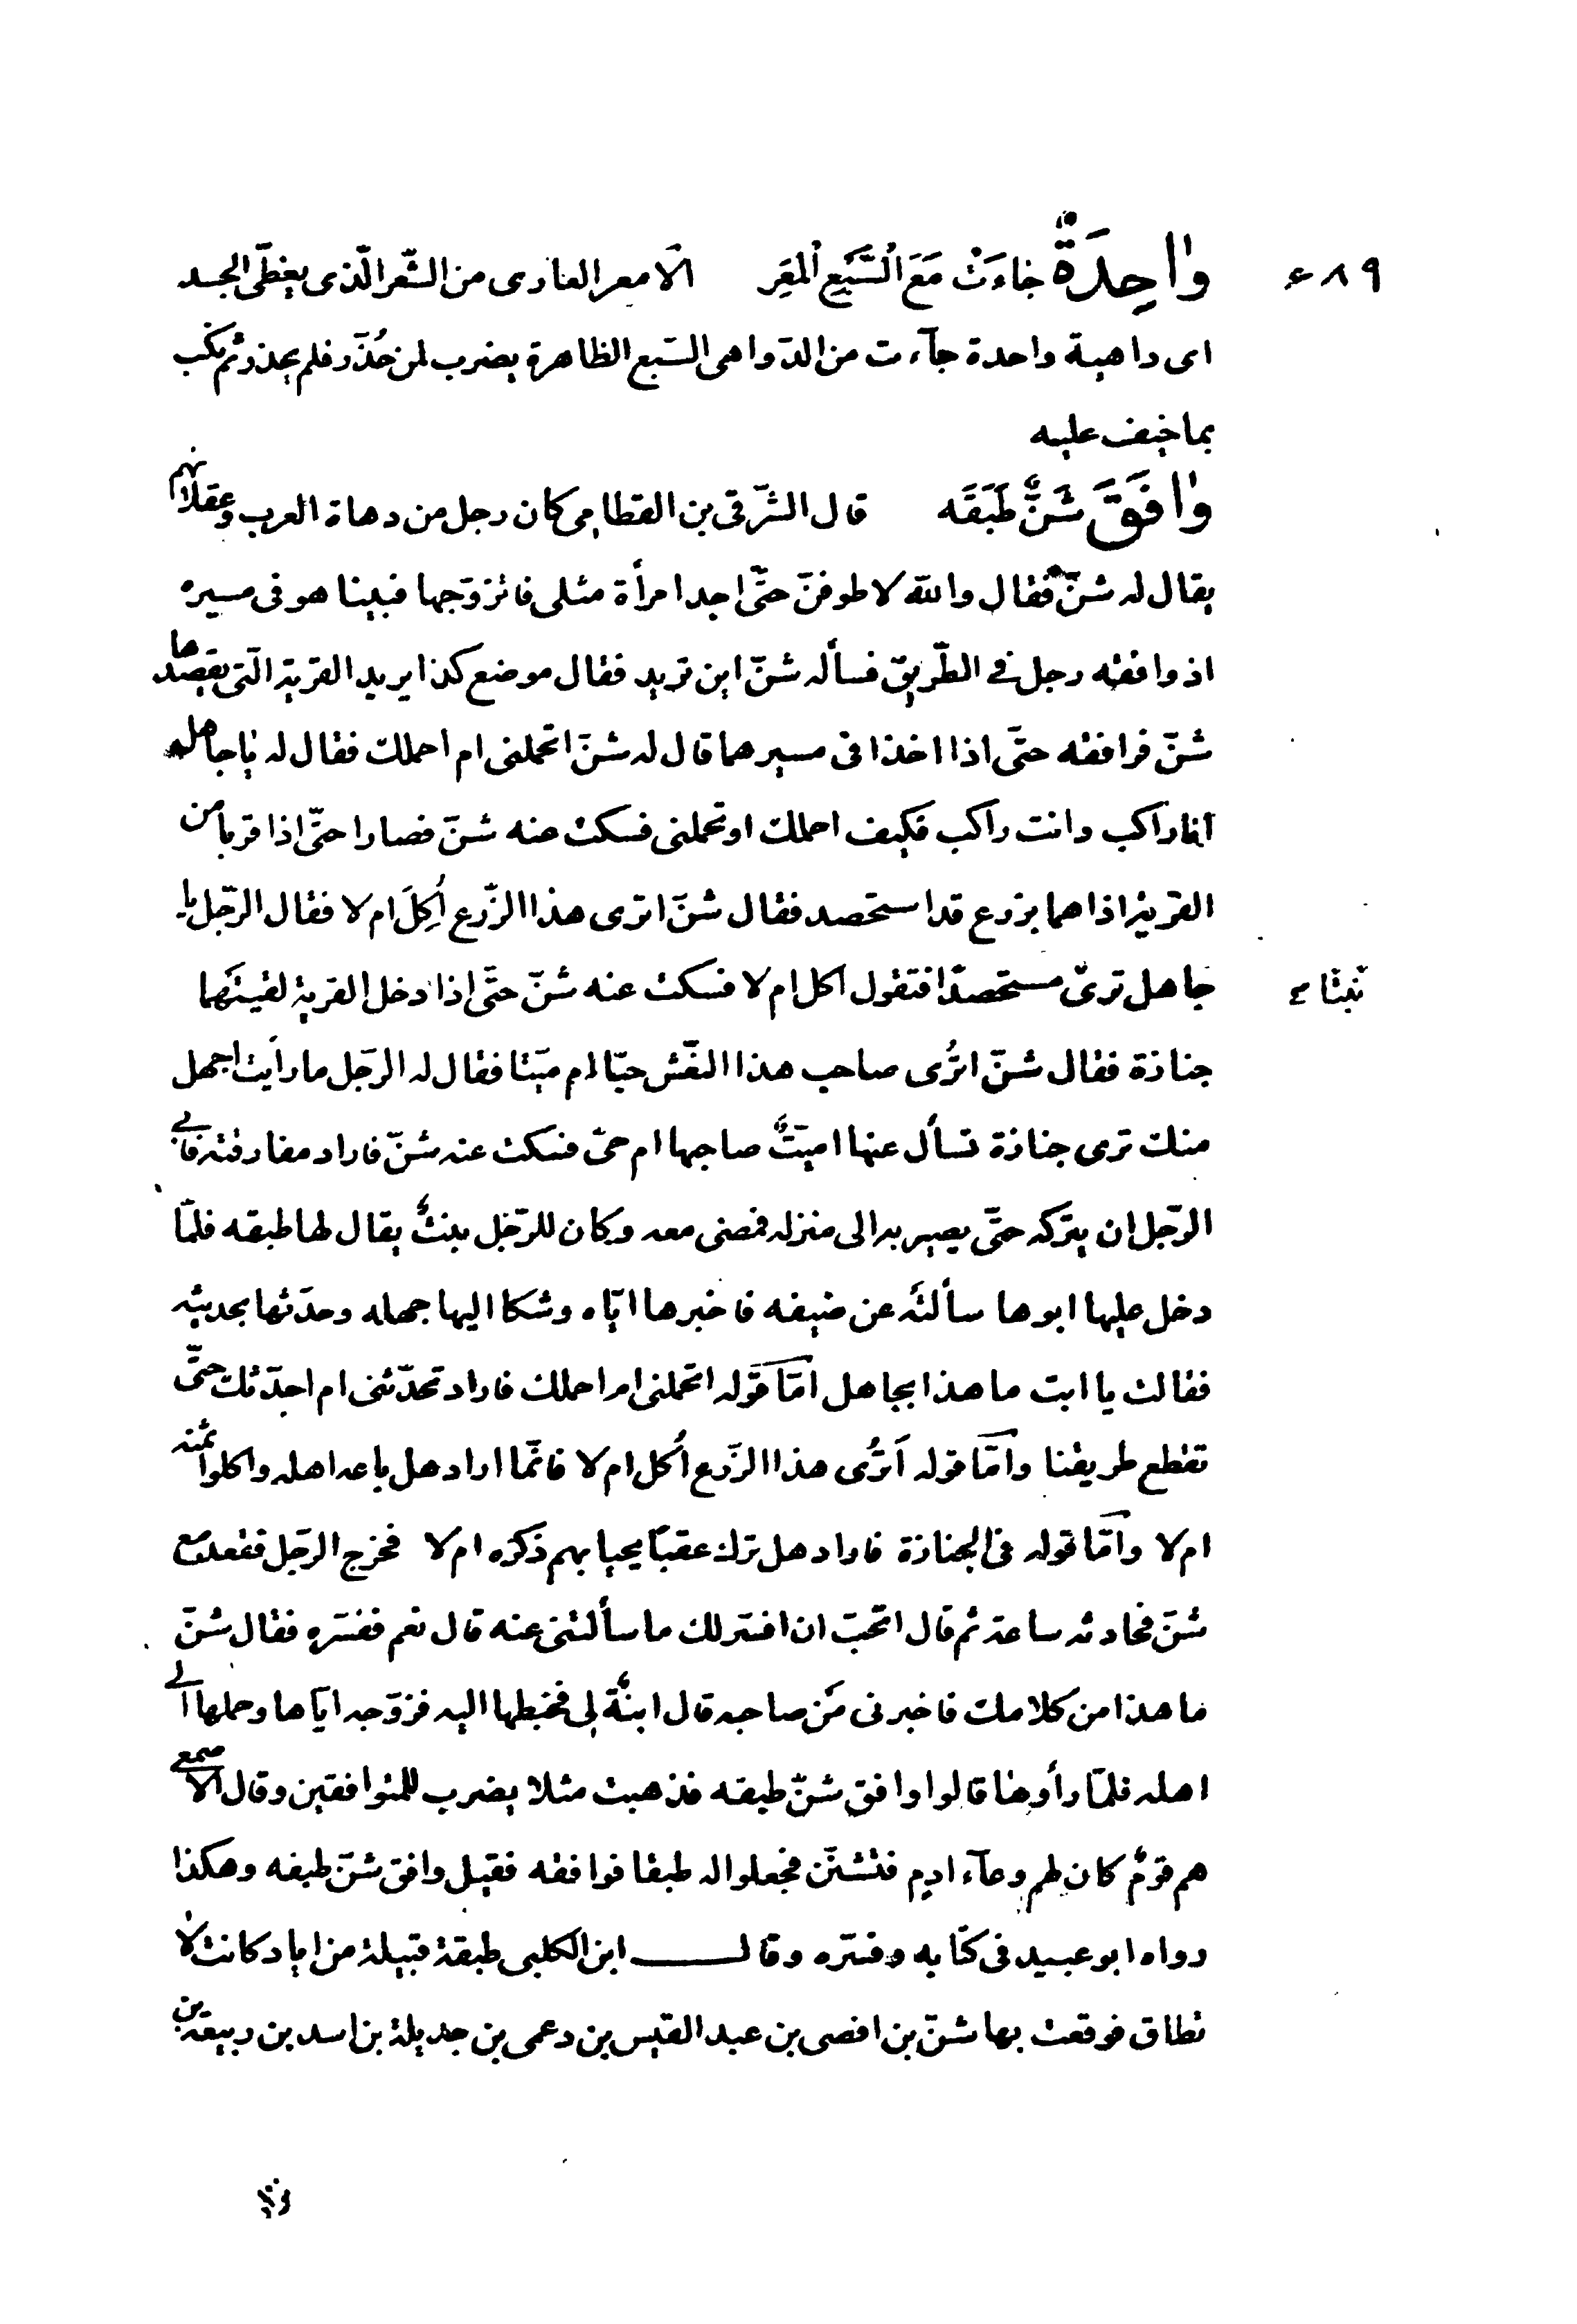 ٤٨٩
وٰاحِدَةٌ جٰاءَتْ مَعَ السَّبْعِ الْمَعِرِ الامعر العاری من الشّعر الّذی یغطّی الجسد
ای داهية واحدة جآءت من الدّواهی السّبع الظاهرة یضرب لمن حُذّر فلم یحذر ثم نکب
بما خیف علیه
وٰافَقَ شَنٌّ طَبَقَه قال الشّرقی بن القطامی کان رجل من دهاة العرب وعقلائهم
یقال له شنّ فقال والله لاطوفنّ حتّی اجد امرأة مثلی فاتزوّجها فبینا هو فی مسیره
اذ وافقه رجل فی الطّریق فسأله شنّ این ترید فقال موضع کذا یرید القریة الّتی یقصدها
شنّ فرافقه حتّی اذا اخذا فی مسیرهما قال له شنّ اتحملنی ام احملك فقال له یا جاهل
انا راکب وانت راکب فکیف احملك او تحملنی فسکت عنه شنّ فصارا حتّی اذا قربا من
القریة اذا هما بزرع قد استحصد فقال شنّ اتری هذا الزّرع اُکِلَ ام لا فقال الرّجل یا
جاهل تری مستحصدًا فتقول اکل ام لا فسکت عنه شنّ حتّی اذا دخل القریة لقیتهما
نبتا
جنازة فقال شنّ اتُری صاحب هذا النّعش حیّا ام میّتا فقال له الرّجل ما رأیت اجهل
منك تری جنازة تسأل عنها امیّتٌ صاحبها ام حیّ فسکت عنه شنّ فاراد مفارقته فابی
الرّجل ان یترکه حتّی یصیر به الی منزله فمضی معه وکان للرّجل بنتٌ یقال لها طبقه فلمّا
دخل علیها ابوها سألته عن ضیفه فاخبرها ایّاه وشکا الیها جهله وحدّثها بحدیثه
فقالت یا ابت ما هذا بجاهل امّا قوله اتحملنی ام احملك فاراد تحدّثنی ام احدّثك حتّی
تقطع طریقنا وامّا قوله اَتُری هذا الزّرع اُکل ام لا فانّما اراد هل باعه اهله واکلوا ثمنه
ام لا وامّا قوله فی الجنازة فاراد هل ترك عقبًا یحیا بهم ذکره ام لا فخرج الرّجل فقعد مع
شنّ فحادثه ساعة ثم قال اتحبّ ان افسّر لك ما سألتنی عنه قال نعم ففسّره فقال شنّ
ما هذا من کلامك فاخبرنی مَن صاحبه قال ابنةٌ لی فخطبها الیه فزوّجه ایّاها وحملها الی
اهله فلمّا رأوها قالوا وافق شنّ طبقه فذهبت مثلا یضرب للمتوافقین وقال الاصمعی
هم قومٌ کان لهم وعآء ادم فتشنّن فجعلوا له طبقا فوافقه فقیل وافق شنّ طبقه وهکذا
رواه ابو عبید فی کتابه وفسّره وقال ابن الکلبی طبقة قبیلة من ایاد کانت لا
تطاق فوقعت بها شنّ بن افصی بن عبد القیس بن دعمی بن جدیلة بن اسد بن ربیعة بن